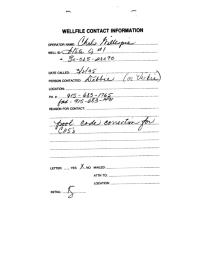 WELLFILE CONTACT INFORMATION
OPERATOR NAME: Chas Gillespie
State Q #1
30-025-
DATE CALLED: 3/2/95
PERSON CONTACTED: Debbie (or Vickie)
LOCATION:
PH #: 915-683-1765
fax: 915-683-
REASON FOR CONTACT:
pool code correction for
C105
LETTER: YES X NO MAILED:
ATTN TO:
LOCATION:
INITIAL: